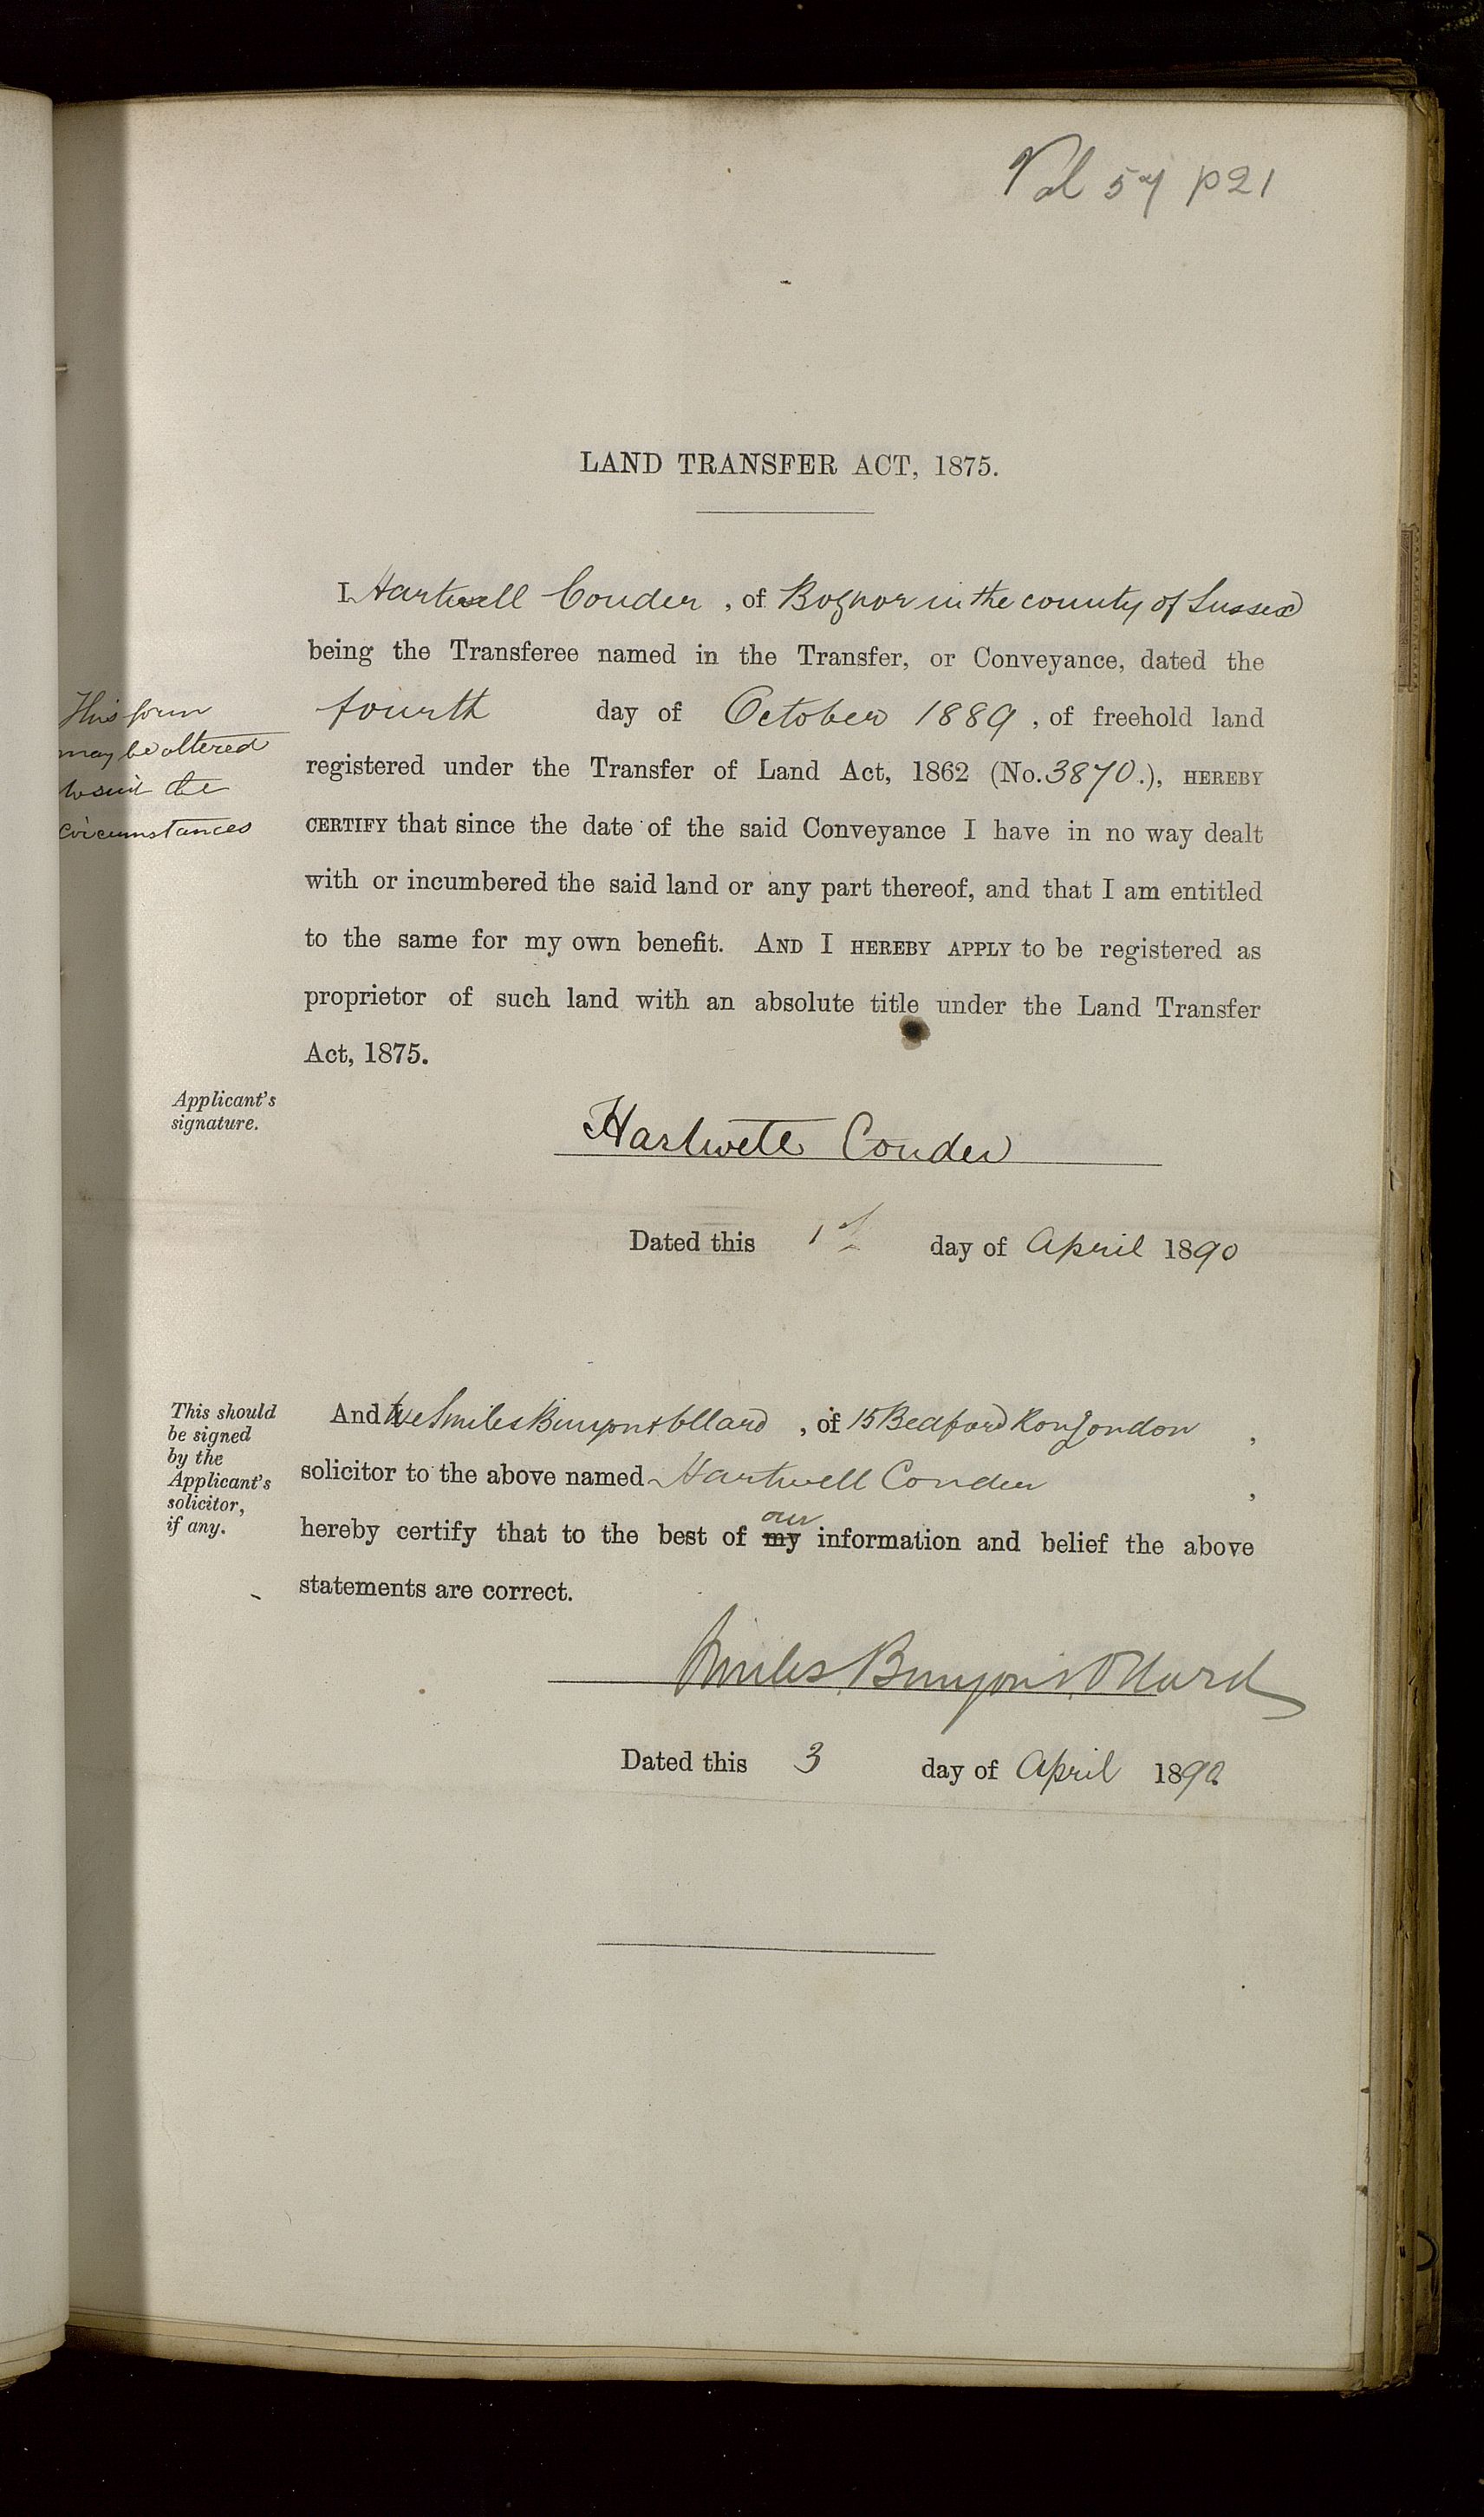 Vol 57 p21
LAND TRANSFER ACT, 1875.
I Hartwell Conder, of Bognor in the county of Sussex
being the Transferee named in the Transfer, or Conveyance, dated the
fourth day of October 1889, of freehold land
registered under the Transfer of Land Act, 1862 (No. 3870.), HEREBY
CERTIFY that since the date of the said Conveyance I have in no way dealt
with or incumbered the said land or any part thereof, and that I am entitled
to the same for my own benefit. AND I HEREBY APPLY to be registered as
proprietor of such land with an absolute title under the Land Transfer
Act, 1875.
This form
may be altered
to suit the
circumstances
Applicant's
signature.
Hartwell Conder
Dated this 1st day of April 1890
This should
be signed
by the
Applicant's
solicitor,
if any.
And We Smiles Binyon & Ollard, of 15 Bedford Row London,
solicitor to the above named Hartwell Conder,
our
hereby certify that to the best of my information and belief the above
statements are correct.
Smiles Binyon & Ollard
Dated this 3 day of April 1890